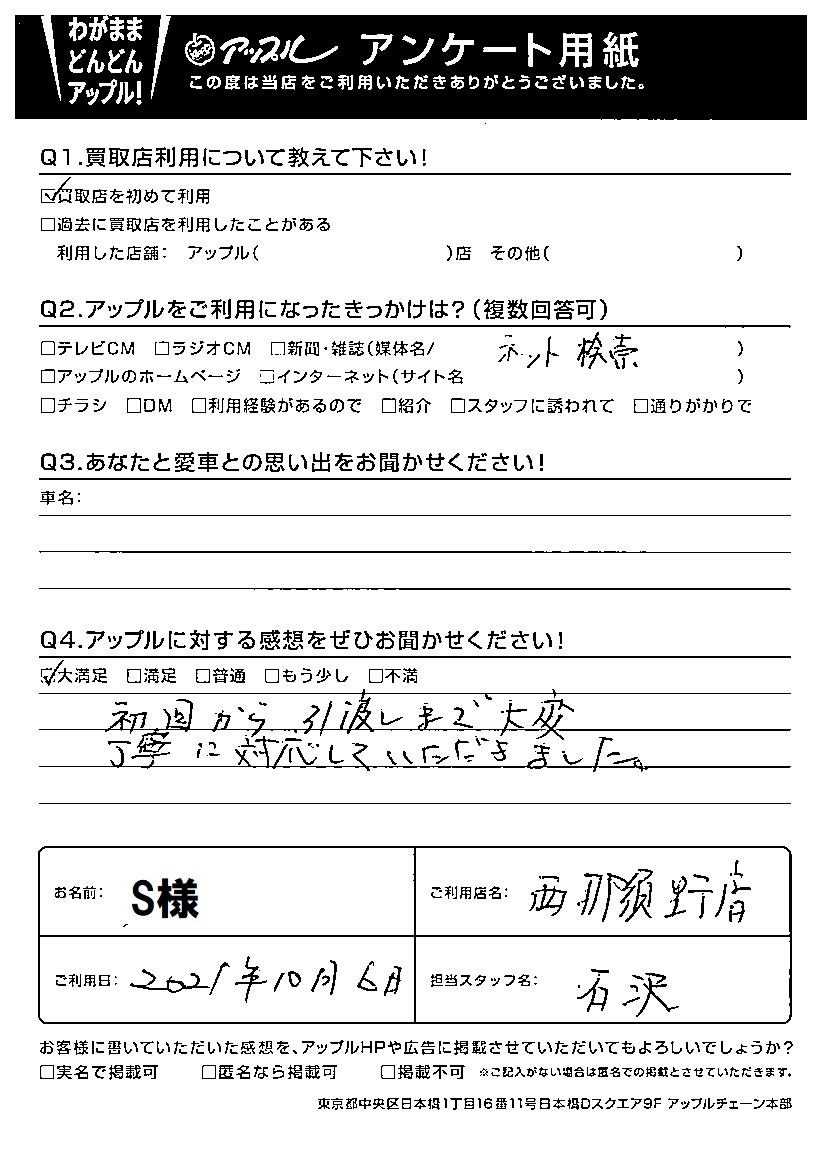 わがまま
どんどん
アップル!
アップル アンケート用紙
この度は当店をご利用いただきありがとうございました。
Q1.買取店利用について教えて下さい!
☑買取店を初めて利用
□過去に買取店を利用したことがある
利用した店舗: アップル( )店 その他( )
Q2.アップルをご利用になったきっかけは?(複数回答可)
□テレビCM □ラジオCM □新聞・雑誌(媒体名/ )
ネット検索
□アップルのホームページ □インターネット(サイト名 )
□チラシ □DM □利用経験があるので □紹介 □スタッフに誘われて □通りがかりで
Q3.あなたと愛車との思い出をお聞かせください!
車名:
Q4.アップルに対する感想をぜひお聞かせください!
☑大満足 □満足 □普通 □もう少し □不満
初回から引渡しまで大変
丁寧に対応していただきました。
お名前: S様
ご利用店名: 西那須野店
ご利用日: 2021年10月6日
担当スタッフ名: 石沢
お客様に書いていただいた感想を、アップルHPや広告に掲載させていただいてもよろしいでしょうか?
□実名で掲載可 □匿名なら掲載可 □掲載不可 ※ご記入がない場合は匿名での掲載とさせていただきます。
東京都中央区日本橋1丁目16番11号日本橋Dスクエア9F アップルチェーン本部